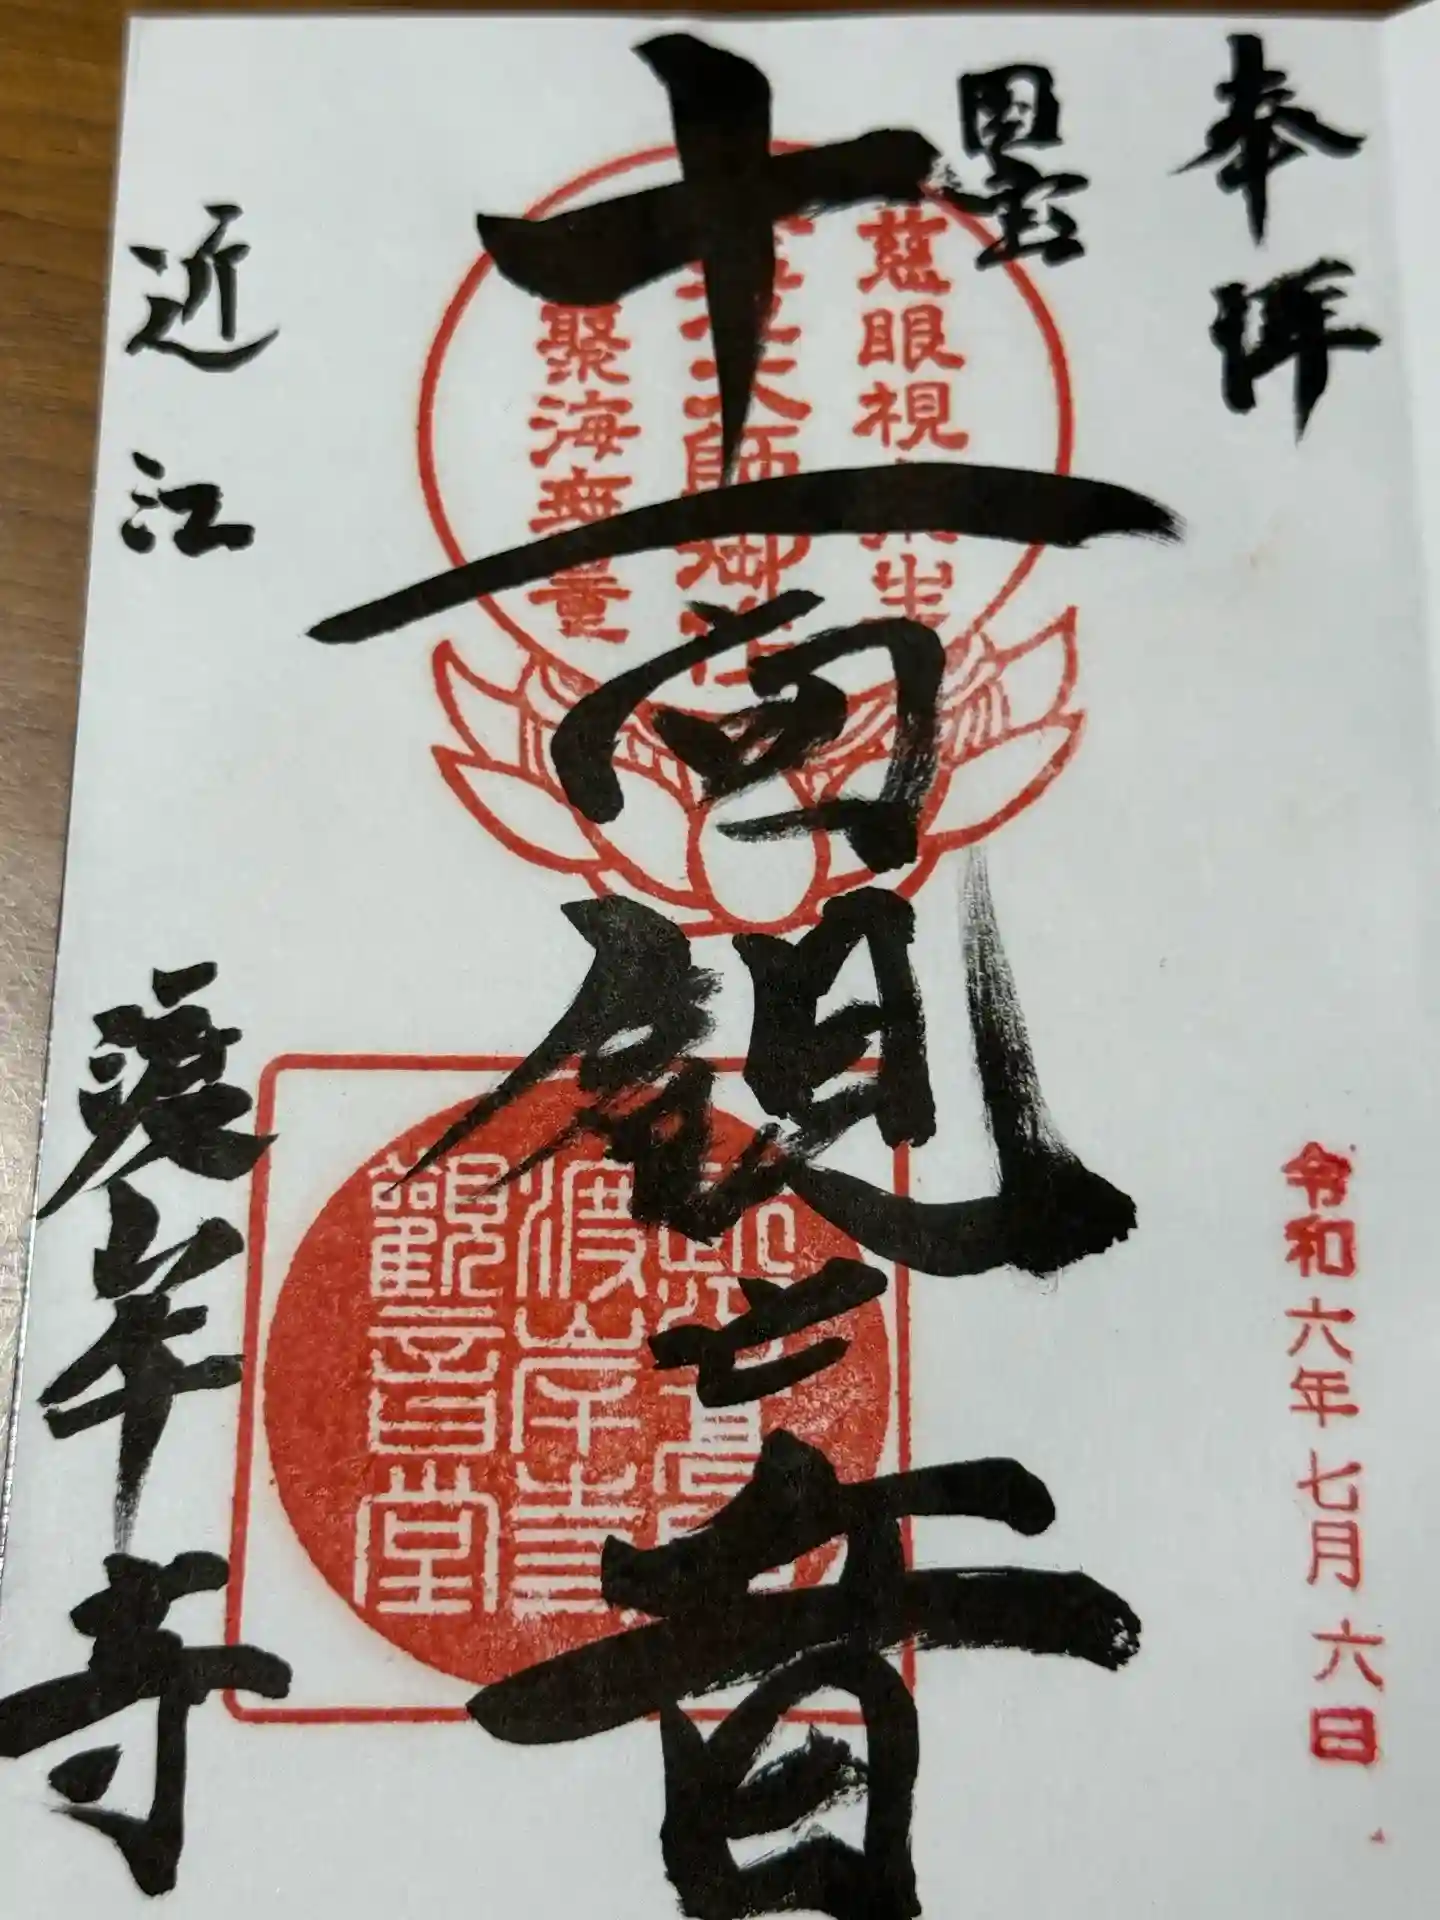 奉拝
国宝
十一面観世音
慈眼視衆生
大師御作
聚海無量
渡岸寺
観音堂
近江
渡岸寺
令和六年七月六日